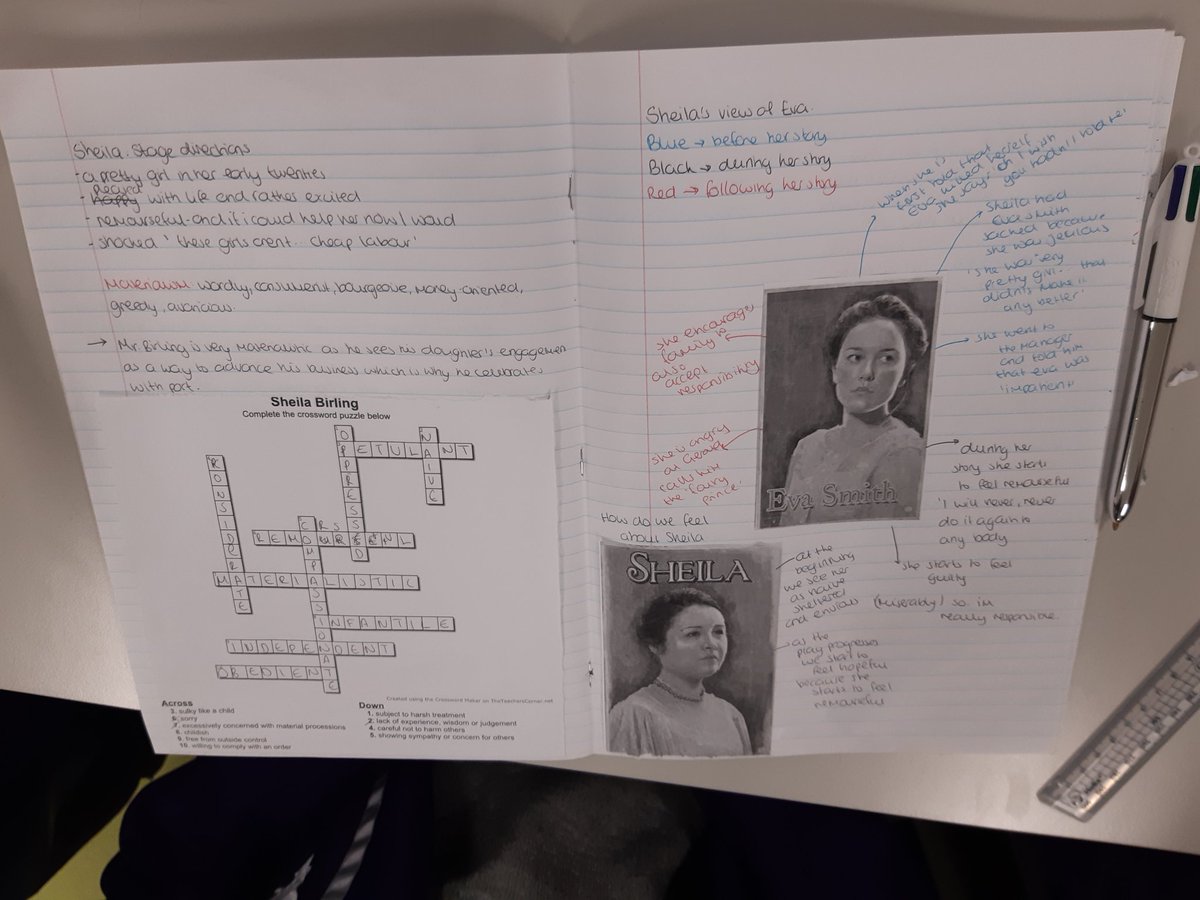 Sheila. Stage directions
- a pretty girl in her early twenties
pleased
- Happy with life and rather excited
- remourseful - and if i could help her now I would
- shocked ' these girls arent... cheap labour'
wordly, consument, bourgeove, money-oriented,
greedy, avaricious.
→ Mr. Birling is very as he sees his daughter's engagement
as a way to advance his business which is why he celebrates
with port.
Sheila Birling
Complete the crossword puzzle below
PETULANT
OPPRESSED
NAIVE
CONSIDERATE
COMPASSIONATE
MATERIALISTIC
INFANTILE
INDEPENDENT
OBEDIENT
Created using the Crossword Maker on TheTeachersCorner.net
Across
3. sulky like a child
6. sorry
7. excessively concerned with material processions
8. childish
9. free from outside control
10. willing to comply with an order
Down
1. subject to harsh treatment
2. lack of experience, wisdom or judgement
4. careful not to harm others
5. showing sympathy or concern for others
Sheila's view of Eva.
Blue → before her story
Black → during her story
Red → following her story
when she is
first told that
Eva killed herself
she says 'oh I wish
you hadn't told me'
Sheila had
Eva smith
sacked because
she was jealous
'she was very
pretty girl.. that
didn't make it
any better'
she went to
the manager
and told him
that eva was
she encourage
family to
also
accept
responsibility
she is angry
at Gerald
calls him
the 'fairy
prince'
Eva Smith
during her
story she starts
to feel remourseful
'I will never, never
do it again to
any body
she starts to feel
guilty
(miserably) so im
really responsible.
How do we feel
about Sheila
SHEILA
at the
beginning
we see her
as naive
sheltered
and envious
as the
play progresses
we start to
feel hopeful
because she
starts to feel